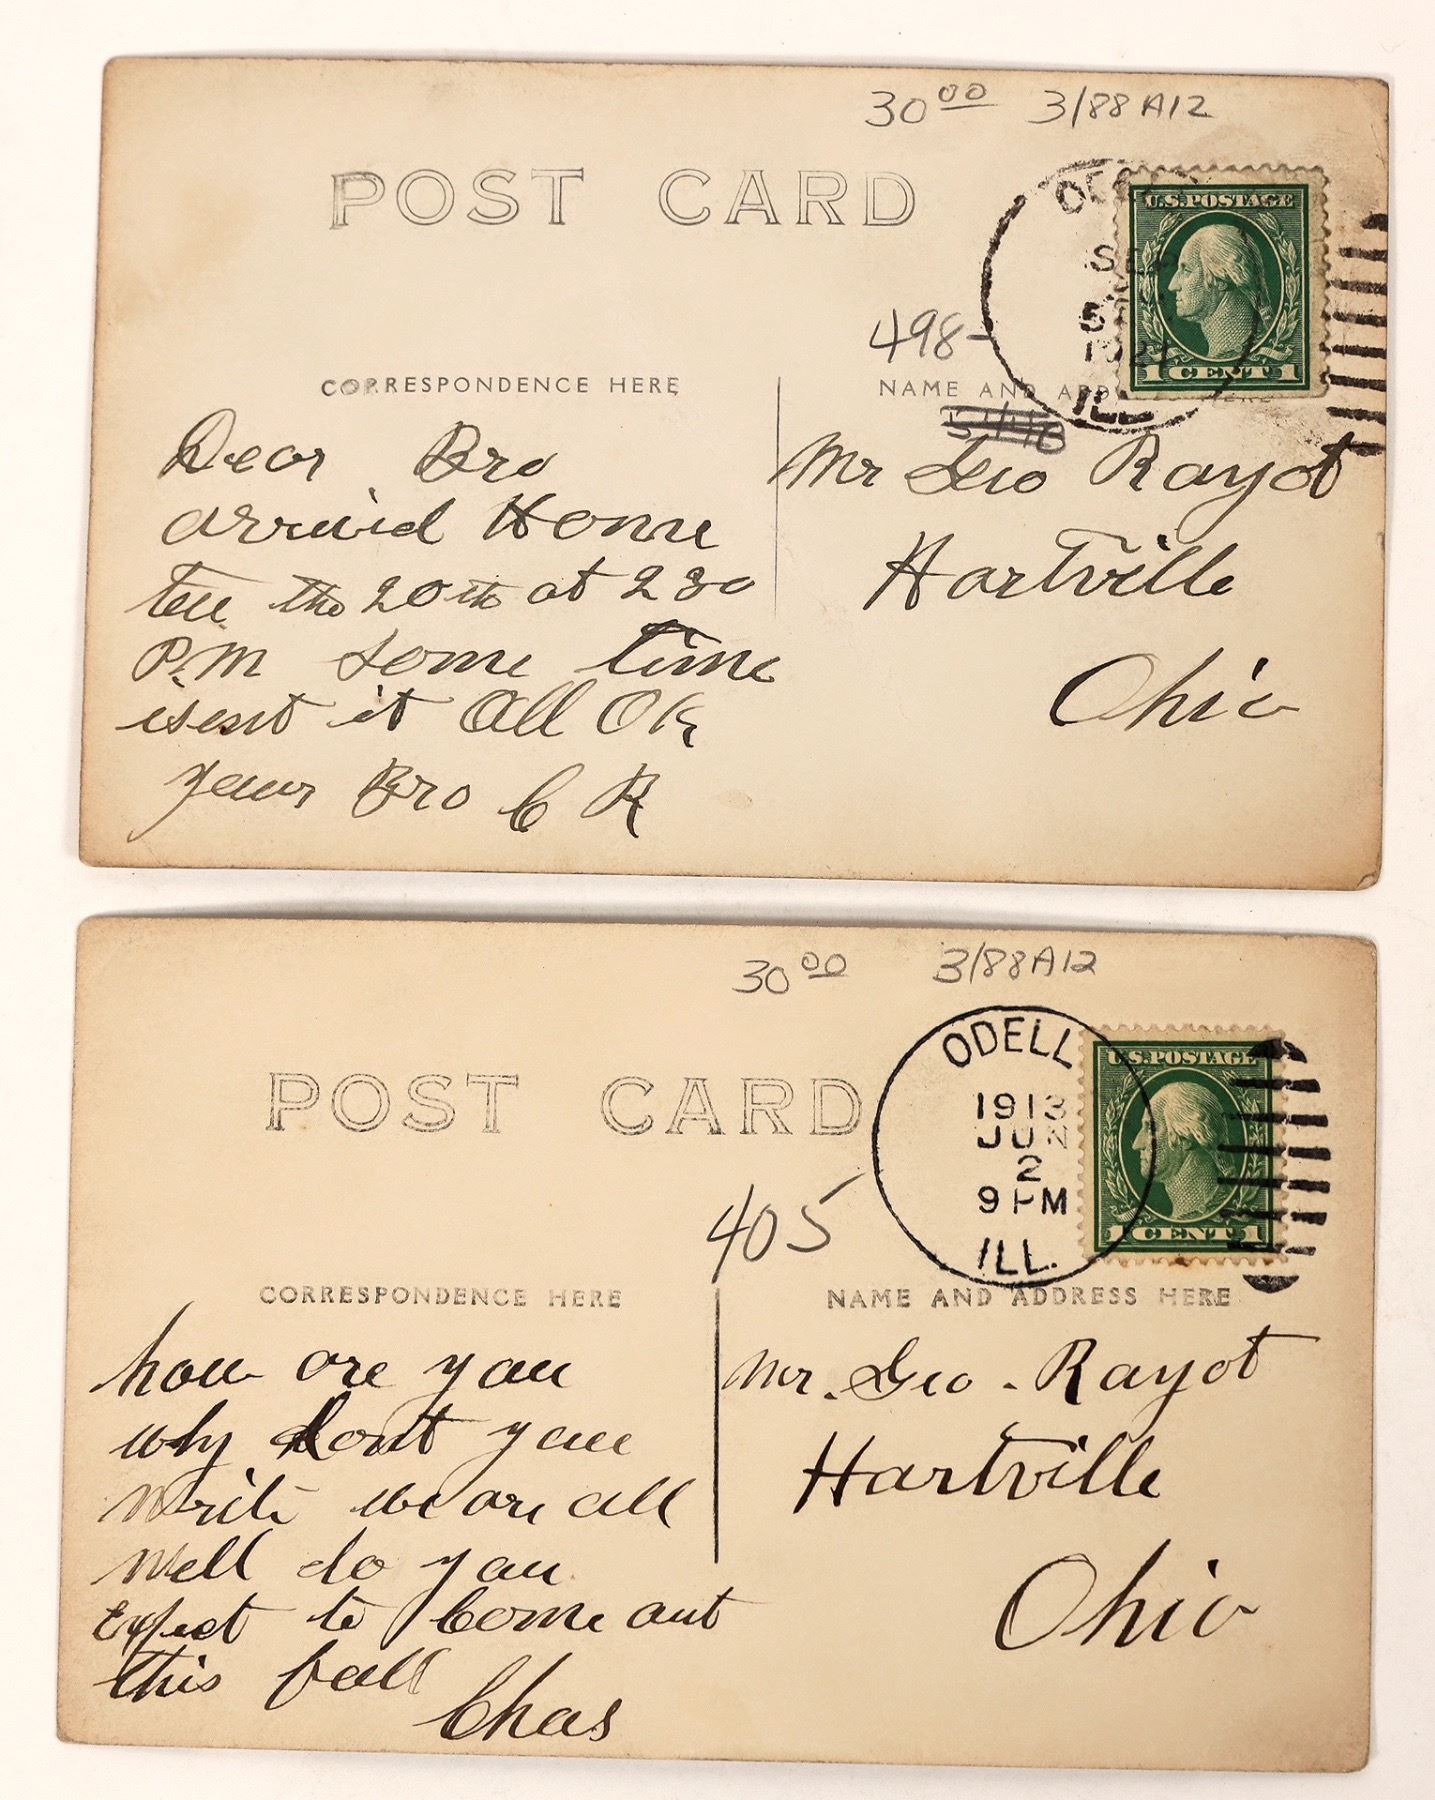 30 00 3/88 A12
POST CARD
U.S. POSTAGE
SEP
5
ILL
1 CENT 1
498-
CORRESPONDENCE HERE
NAME AND ADDRESS HERE
Dear Bro
arrived Home
the 20th at 2 30
P.M some time
isent it All OK
your Bro C R
Mr Geo Rayot
Hartville
Ohio
30 00 3/88 A12
POST CARD
ODELL
1913
JUN
2
9 PM
ILL.
U.S. POSTAGE
1 CENT 1
405
CORRESPONDENCE HERE
NAME AND ADDRESS HERE
how are you
why dont you
write we are all
well do you
Expect to Come out
this fall
Chas
Mr. Geo. Rayot
Hartville
Ohio